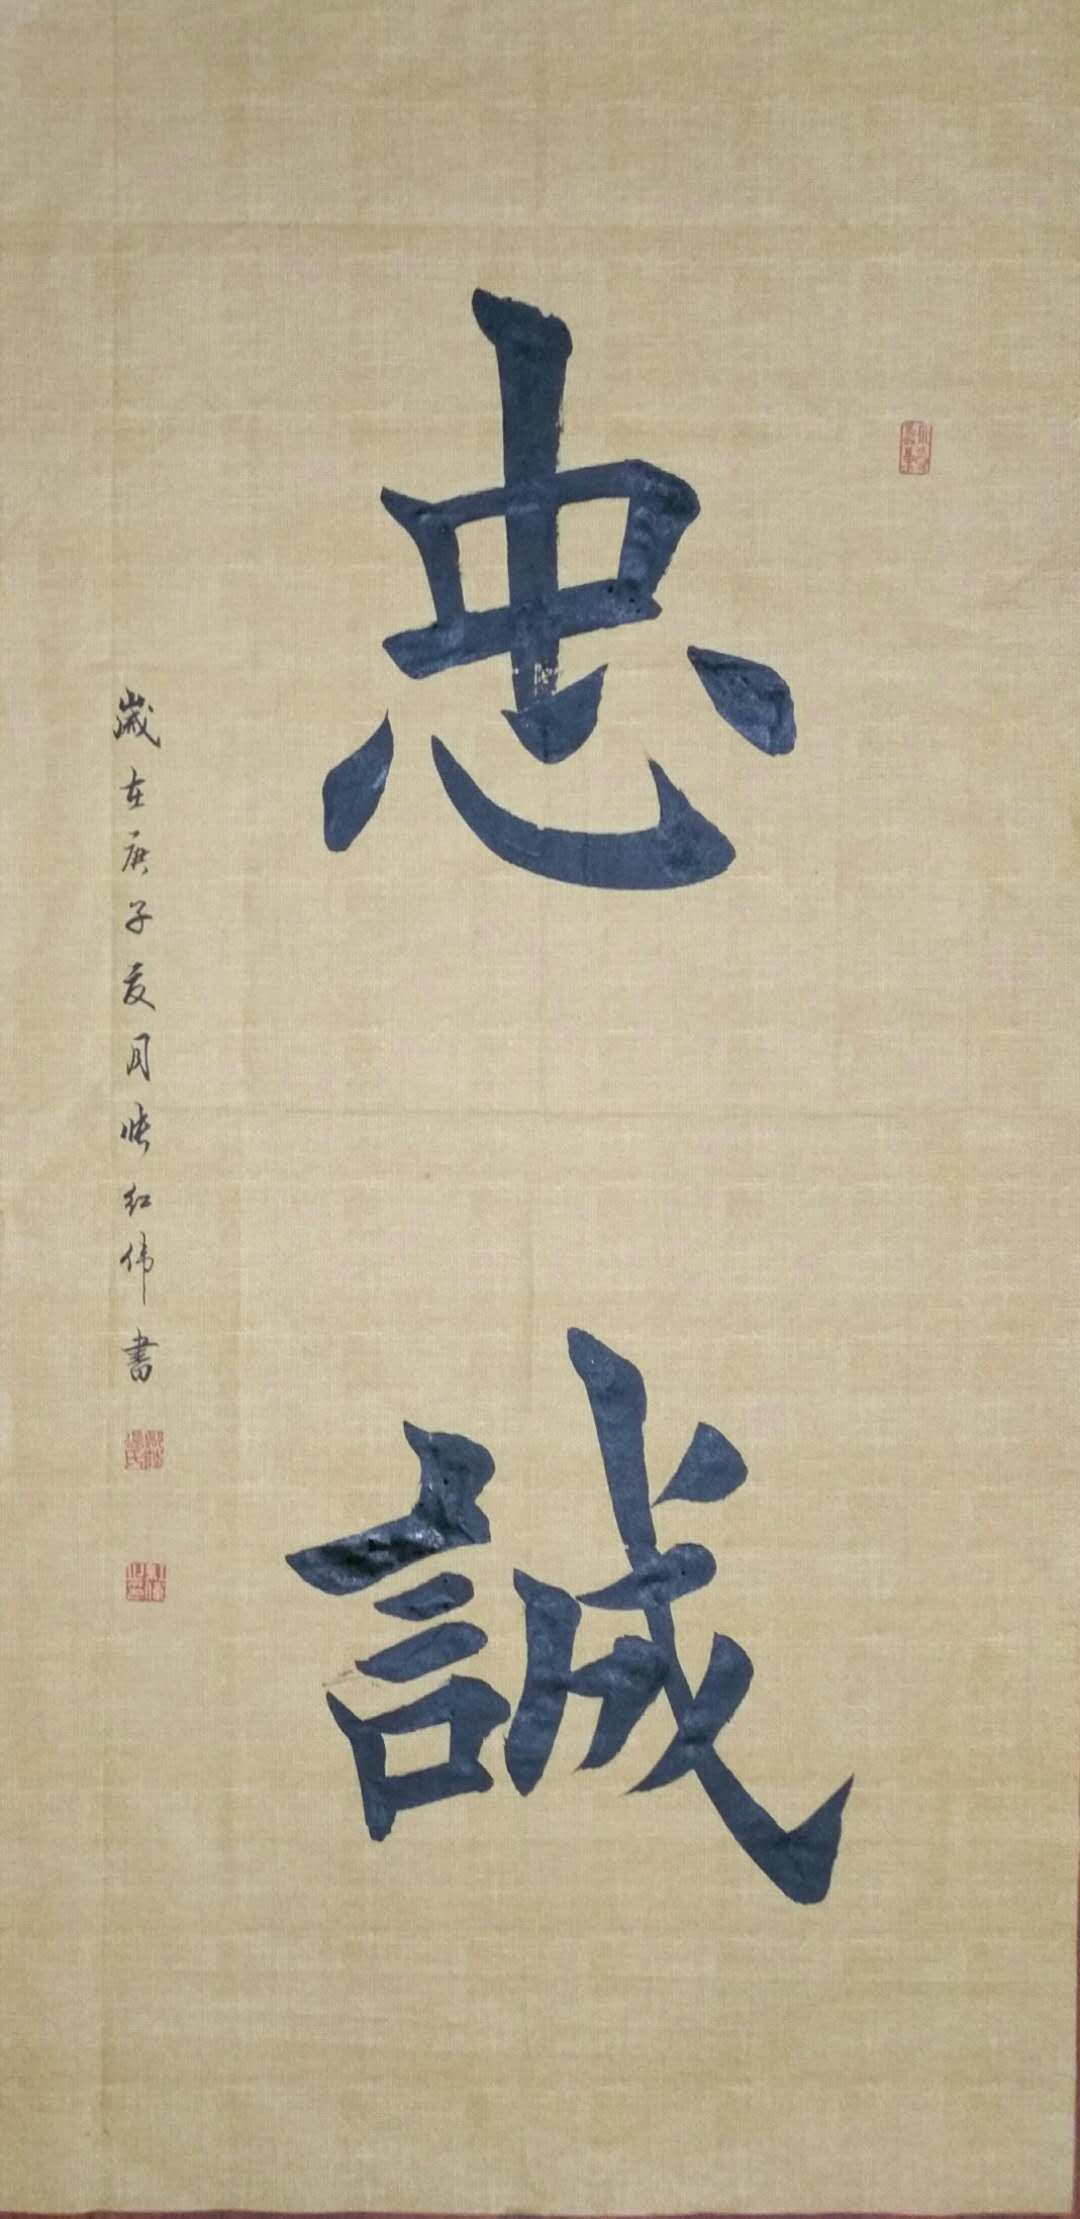 忠誠
歲在庚子夏月张红伟書